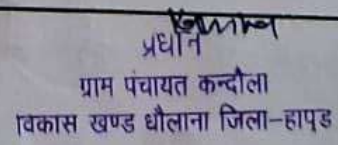 प्रधान
ग्राम पंचायत कन्दौला
विकास खण्ड धौलाना जिला-हापुड